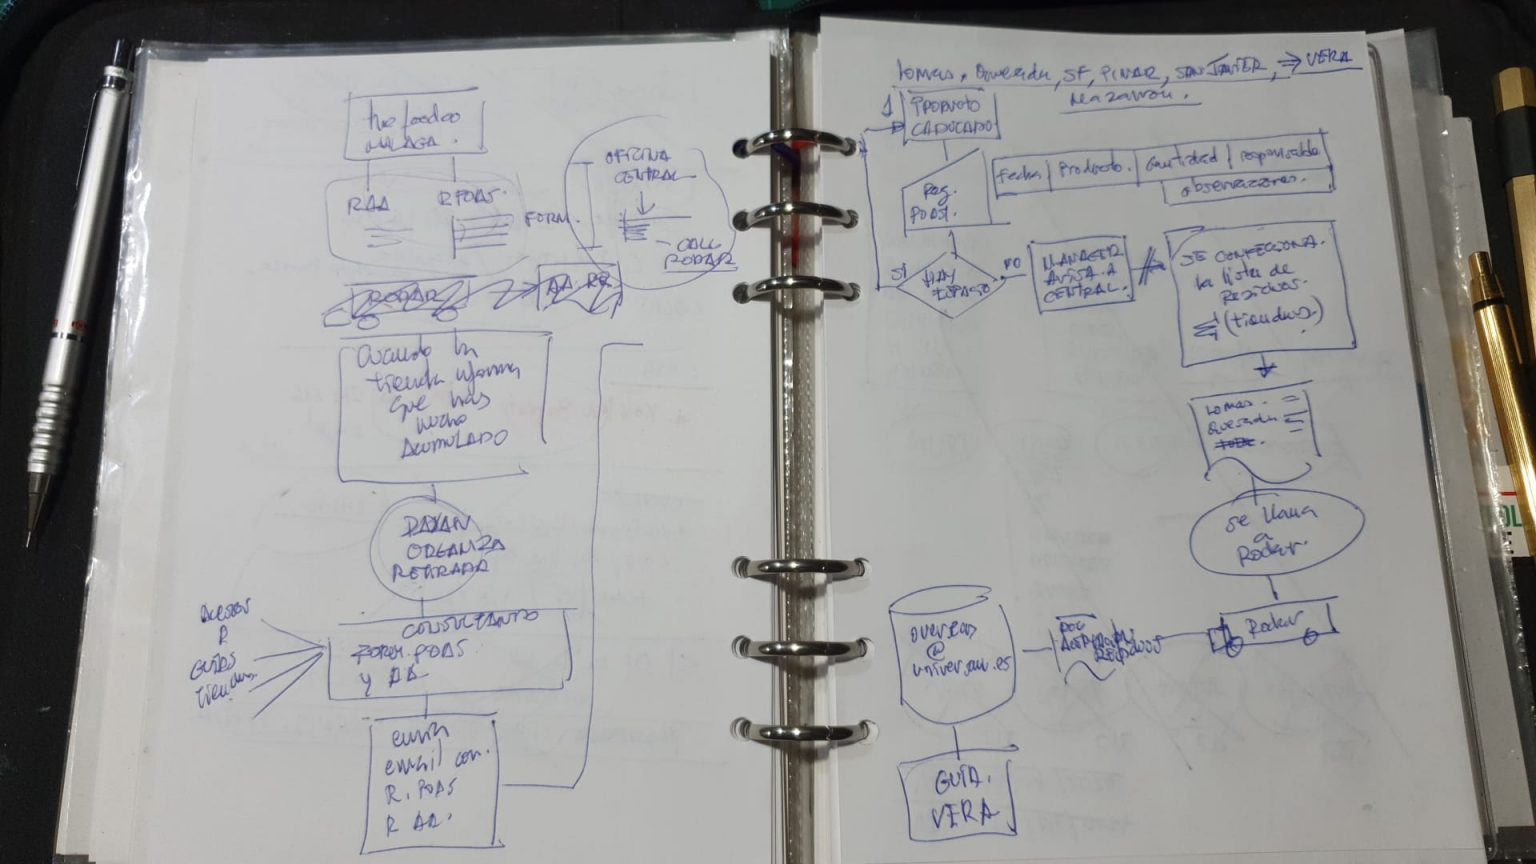 MALAGA.
RAA
RPOAS.
FORM.
OFICINA
CENTRAL
CALL
RODAR
RODAR
Cuando la
tienda informa
que hay
mucho
ACUMULADO
DAYAN
ORGANIZA
RETIRADA
CONSULTANDO
FORM. POAS
y AA
Acceso
a
GUÍAS
Tiendas.
envía
email con.
R. POAS
R AA.
Lomas, Quesada, SF, PINAR, SAN JAVIER, → VERA
Mazarron.
1
PRODUCTO
CADUCADO
Reg.
POAS.
Fecha | Producto. | Cantidad | responsable
observaciones.
SI
HAY
ESPACIO
NO
MANAGER
AVISA A
CENTRAL.
SE CONFECCIONA.
la lista de
Residuos.
(tiendas)
Lomas.
Quesada
Se llama
a
Rodar.
Rodar
DOC
Residuos
@
GUÍA.
VERA